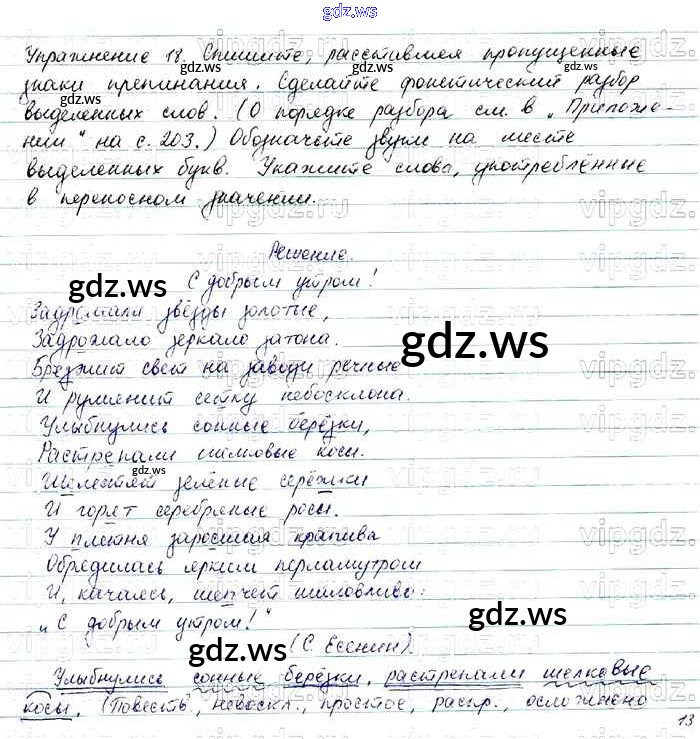 gdz.ws
Упражнение 18. Спишите, расставляя пропущенные
знаки препинания. Сделайте фонетический разбор
выделенных слов. (О порядке разбора см. в „Приложе-
нии" на с. 203.) Обозначьте звуки на месте
выделенных букв. Укажите слова, употреблённые
в переносном значении.
Решение.
С добрым утром!
Задремали звёзды золотые,
Задрожало зеркало затона.
Брезжит свет на заводи речные
И румянит сетку небосклона.
Улыбнулись сонные берёзки,
Растрепали шёлковые косы.
Шелестят зелёные серёжки
И горят серебряные росы.
У плетня заросшая крапива
Обрядилась ярким перламутром
И, качаясь, шепчет шаловливо:
„С добрым утром!"
(С. Есенин).
Улыбнулись сонные берёзки, растрепали шелковые
косы. (Повеств., невоскл., простое, распр., осложнено
13
gdz.ws
gdz.ws
gdz.ws
gdz.ws
gdz.ws
gdz.ws
gdz.ws
gdz.ws